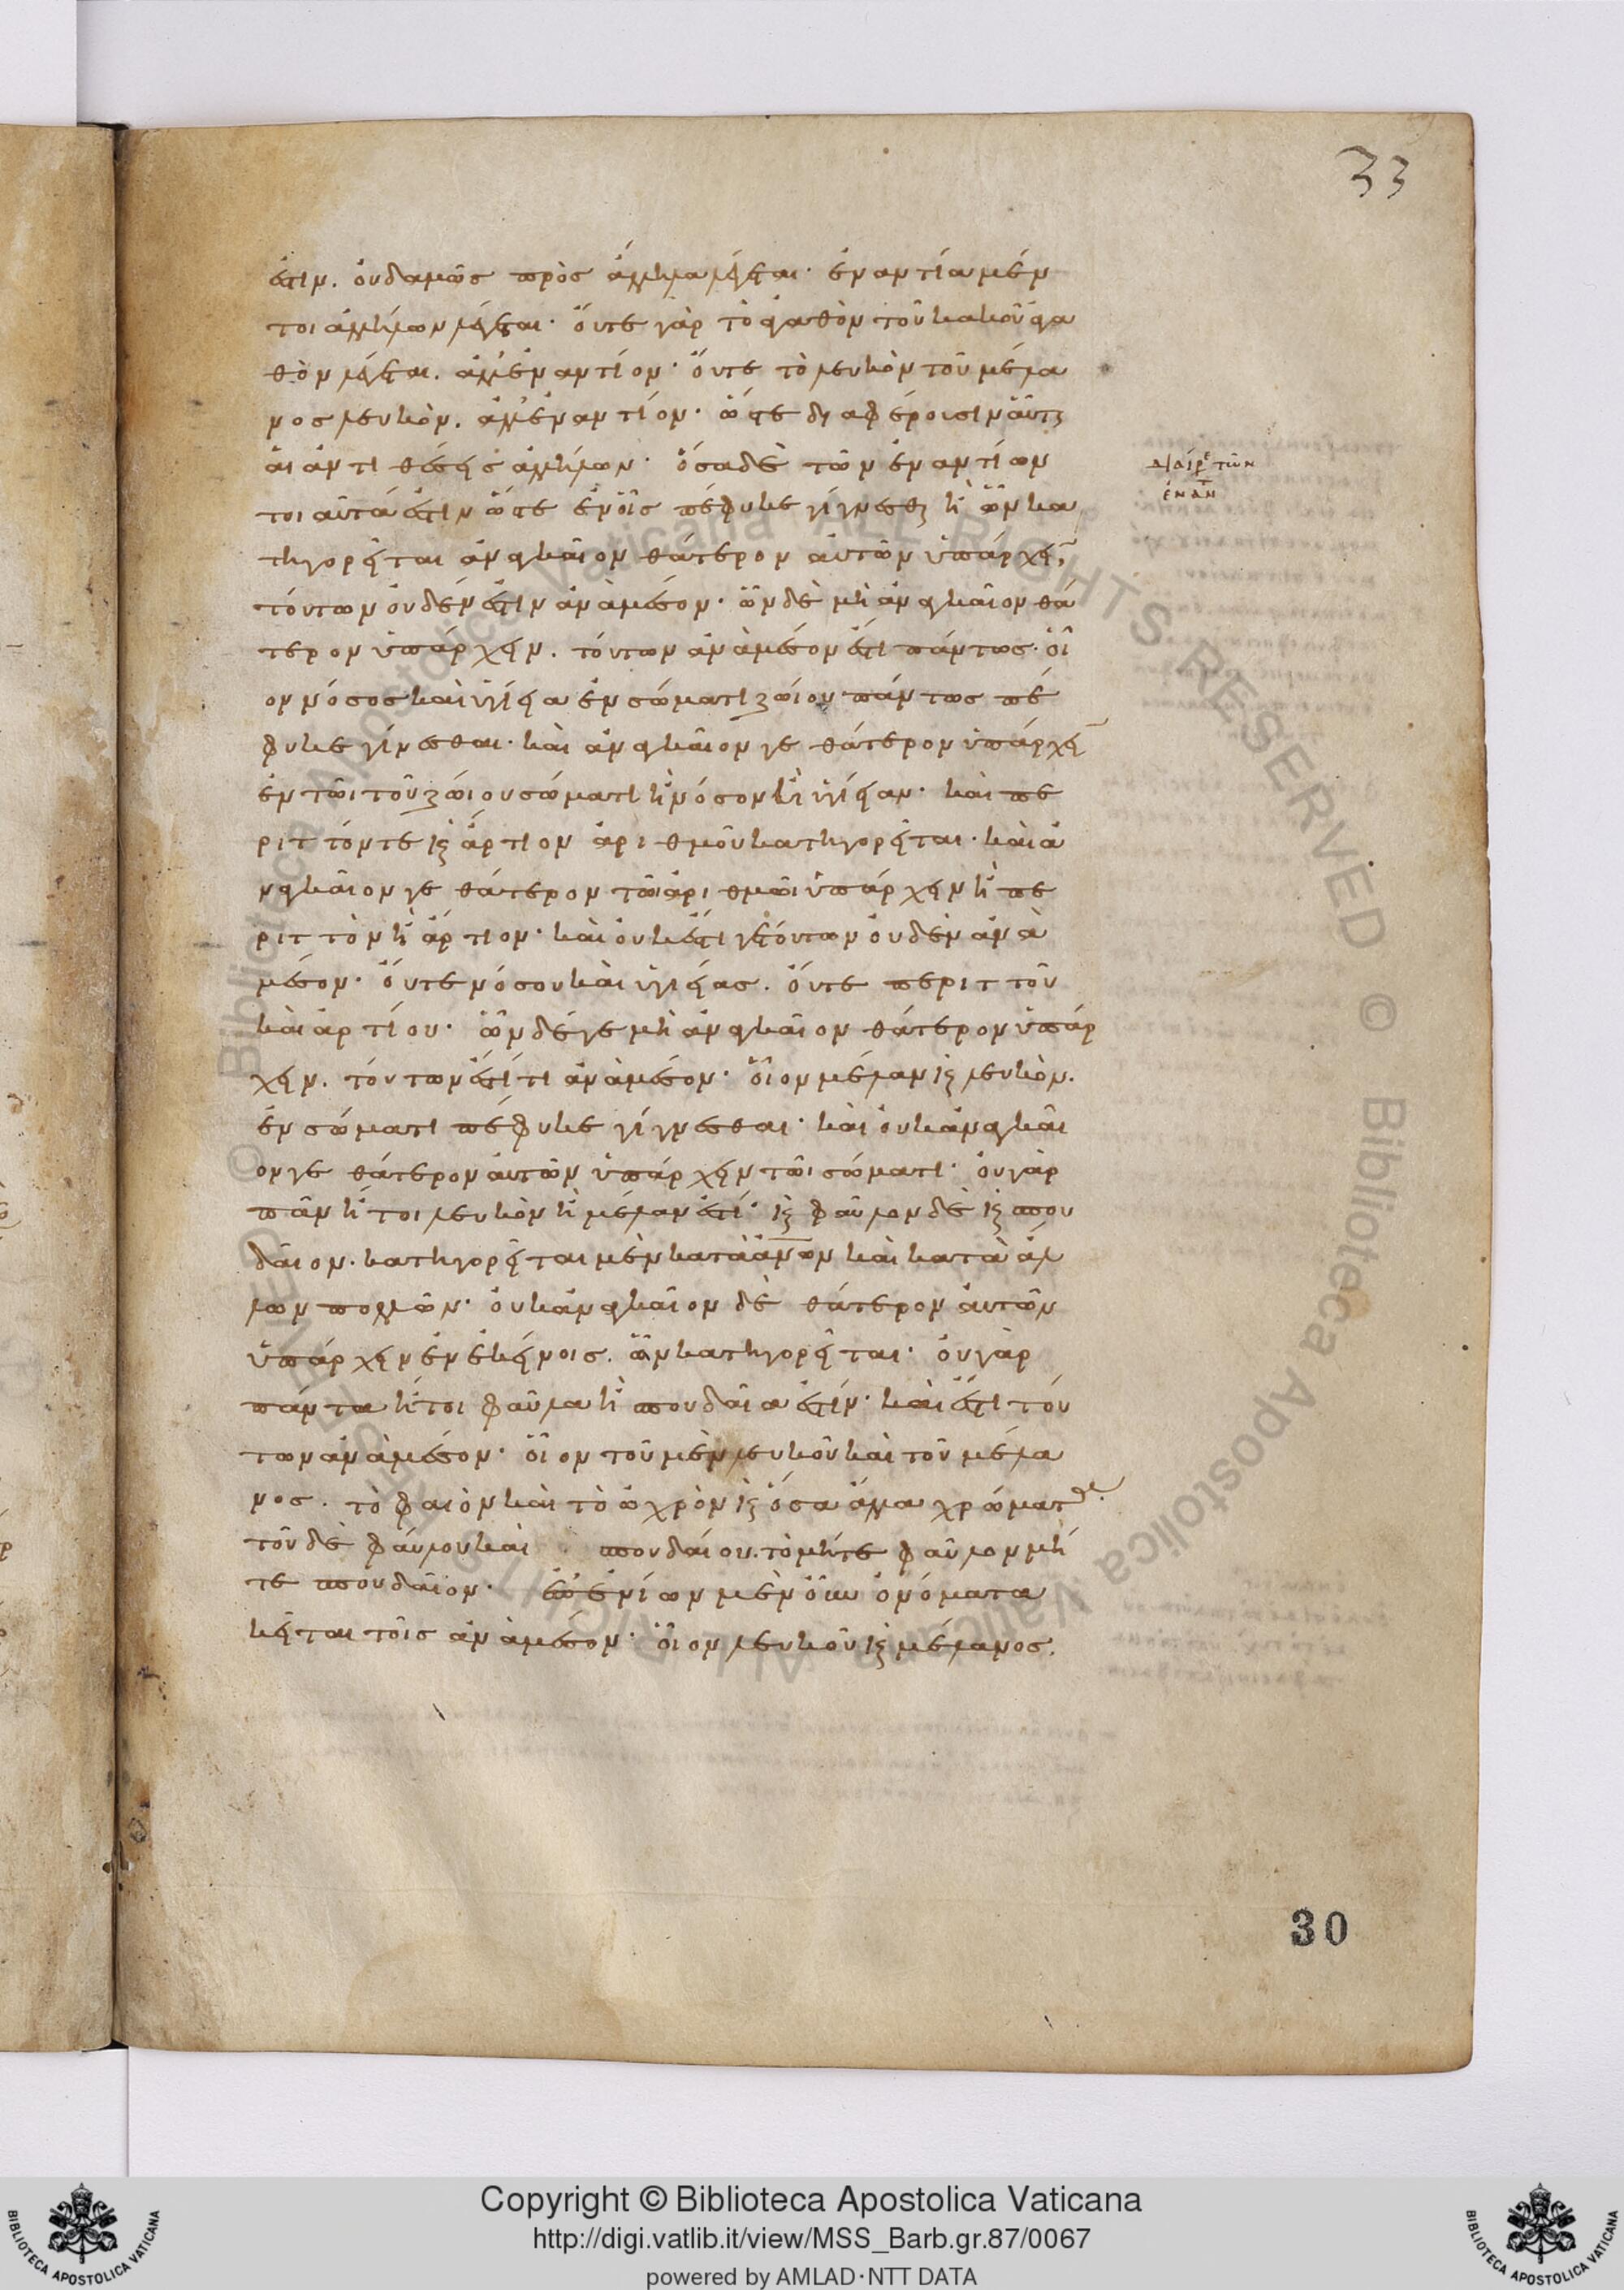 33
ἐστιν. οὐδαμῶς πρὸς ἄλληλα λέγεται· ἐναντία μέν
τοι ἀλλήλων λέγεται· οὔτε γὰρ τὸ ἀγαθὸν τοῦ κακοῦ ἀγα
θὸν λέγεται. ἀλλ' ἐναντίον· οὔτε τὸ λευκὸν τοῦ μέλα
νος λευκόν. ἀλλ' ἐναντίον· ὥστε διαφέρουσιν αὗται
αἱ ἀντιθέσεις ἀλλήλων· ὅσα δὲ τῶν ἐναντίων
τοιαῦτά ἐστιν ὥστε ἐν οἷς πέφυκε γίγνεσθαι ἢ ὧν κα
τηγορεῖται ἀναγκαῖον θάτερον αὐτῶν ὑπάρχειν,
τούτων οὐδέν ἐστιν ἀνὰ μέσον· ὧν δὲ μὴ ἀναγκαῖον θά
τερον ὑπάρχειν. τούτων ἀνὰ μέσον ἐστὶ πάντως· οἷ
ον νόσος καὶ ὑγίεια ἐν σώματι ζώιου πάντως πέ
φυκε γίνεσθαι· καὶ ἀναγκαῖον γε θάτερον ὑπάρχειν
ἐν τῶι τοῦ ζώιου σώματι ἢ νόσον ἢ ὑγίειαν· καὶ πε
ριττόν τε καὶ ἄρτιον ἀριθμοῦ κατηγορεῖται· καὶ ἀ
ναγκαῖον γε θάτερον τῶι ἀριθμῶι ὑπάρχειν ἢ πε
ριττὸν ἢ ἄρτιον· καὶ οὐκ ἔστι γε τούτων οὐδὲν ἀνὰ
μέσον· οὔτε νόσου καὶ ὑγιείας. οὔτε περιττοῦ
καὶ ἀρτίου· ὧν δέ γε μὴ ἀναγκαῖον θάτερον ὑπάρ
χειν. τούτων ἐστί τι ἀνὰ μέσον· οἷον μέλαν καὶ λευκόν.
ἐν σώματι πέφυκε γίγνεσθαι· καὶ οὐκ ἀναγκαῖ
ον γε θάτερον αὐτῶν ὑπάρχειν τῶι σώματι· οὐ γὰρ
πᾶν ἤτοι λευκὸν ἢ μέλαν ἐστί· καὶ φαῦλον δὲ καὶ σπου
δαῖον. κατηγορεῖται μὲν κατὰ ἀνων καὶ κατὰ ἄλ
λων πολλῶν· οὐκ ἀναγκαῖον δὲ θάτερον αὐτῶν
ὑπάρχειν ἐν ἐκείνοις. ὧν κατηγορεῖται· οὐ γὰρ
πάντα ἤτοι φαῦλα ἢ σπουδαῖα ἐστίν· καὶ ἔστι τού
των ἀνὰ μέσον· οἷον τοῦ μὲν λευκοῦ καὶ τοῦ μέλα
νος. τὸ φαιὸν καὶ τὸ ὠχρὸν καὶ ὅσα ἄλλα χρώματα·
τοῦ δὲ φαύλου καὶ σπουδαίου. τὸ μήτε φαῦλον μή
τε σπουδαῖον· ἐπ' ἐνίων μὲν οὖν ὀνόματα
κεῖται τοῖς ἀνὰ μέσον· οἷον λευκοῦ καὶ μέλανος.
διαίρε τῶν
ἐναντ
30
Copyright © Biblioteca Apostolica Vaticana
http://digi.vatlib.it/view/MSS_Barb.gr.87/0067
powered by AMLAD·NTT DATA